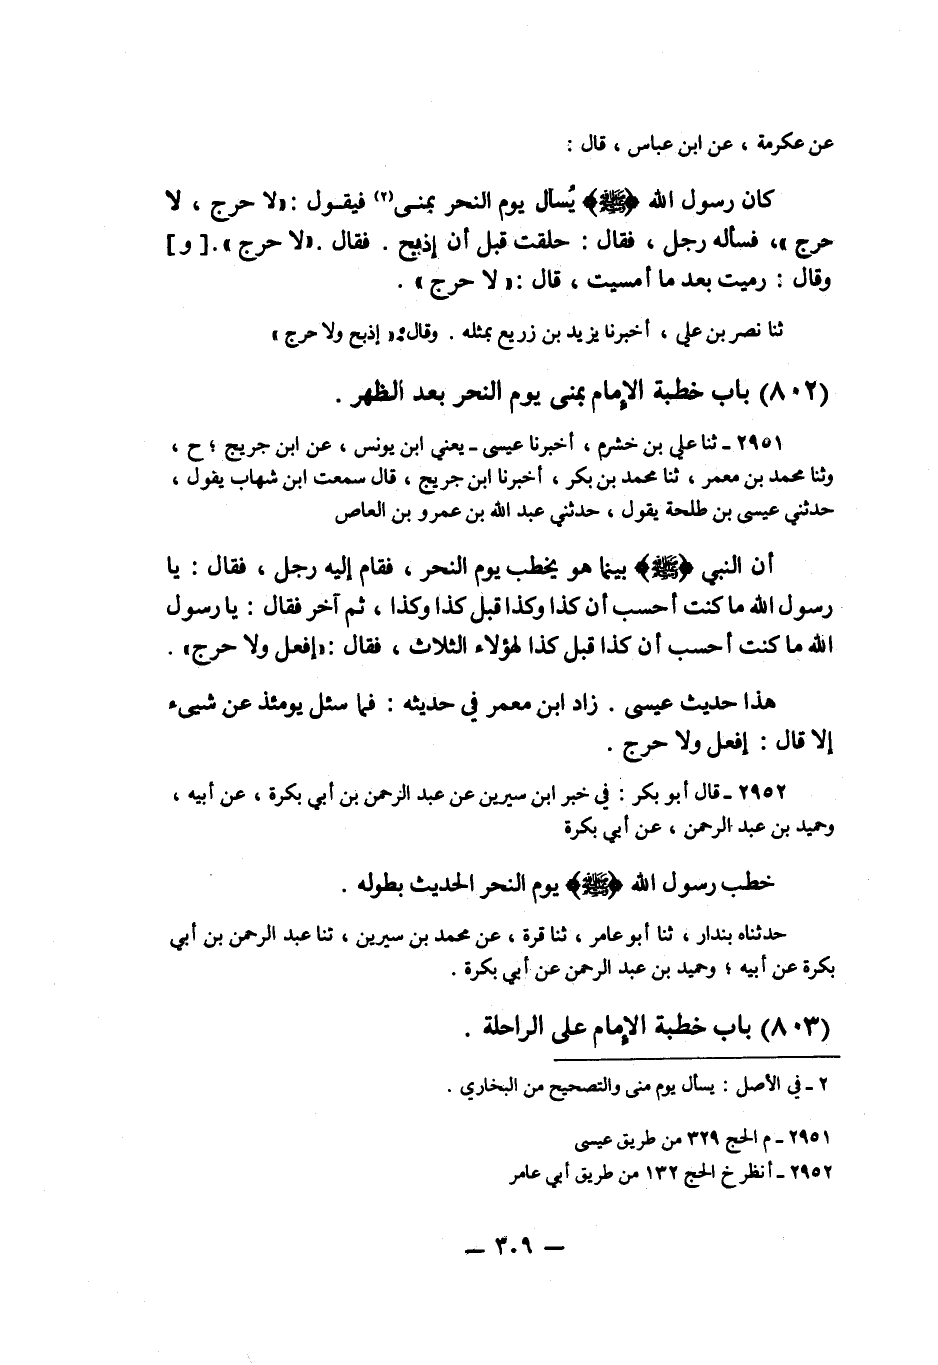 عن عكرمة ، عن ابن عباس ، قال :
كان رسول الله ﴿ﷺ﴾ يُسأل يوم النحر بمنـى(٢) فيقـول :«لا حرج ، لا
حرج »، فسأله رجل ، فقال : حلقت قبل أن إذبح . فقال .«لا حرج ».[ و]
وقال : رميت بعد ما أمسيت ، قال :« لا حرج » .
ثنا نصر بن علي ، أخبرنا يزيد بن زريع بمثله . وقال:« إذبح ولا حرج »
(٨٠٢) باب خطبة الإمام بمنى يوم النحر بعد الظهر .
٢٩٥١ ـ ثنا علي بن خشرم ، أخبرنا عيسى ـ يعني ابن يونس ، عن ابن جريج ؛ ح ،
وثنا محمد بن معمر ، ثنا محمد بن بكر ، أخبرنا ابن جريج ، قال سمعت ابن شهاب يقول ،
حدثني عيسى بن طلحة يقول ، حدثني عبد الله بن عمرو بن العاص
أن النبي ﴿ﷺ﴾ بينما هو يخطب يوم النحر ، فقام إليه رجل ، فقال : يا
رسول الله ما كنت أحسب أن كذا وكذا قبل كذا وكذا ، ثم آخر فقال : يا رسول
الله ما كنت أحسب أن كذا قبل كذا لهؤلاء الثلاث ، فقال :«إفعل ولا حرج» .
هذا حديث عيسى . زاد ابن معمر في حديثه : فما سئل يومئذ عن شيىء
إلا قال : إفعل ولا حرج .
٢٩٥٢ ـ قال أبو بكر : في خبر ابن سيرين عن عبد الرحمن بن أبي بكرة ، عن أبيه ،
وحميد بن عبد الرحمن ، عن أبي بكرة
خطب رسول الله ﴿ﷺ﴾ يوم النحر الحديث بطوله .
حدثناه بندار ، ثنا أبو عامر ، ثنا قرة ، عن محمد بن سيرين ، ثنا عبد الرحمن بن أبي
بكرة عن أبيه ؛ وحميد بن عبد الرحمن عن أبي بكرة .
(٨٠٣) باب خطبة الإمام على الراحلة .
٢ ـ في الأصل : يسأل يوم منى والتصحيح من البخاري .
٢٩٥١ ـ م الحج ٣٢٩ من طريق عيسى
٢٩٥٢ ـ أنظر خ الحج ١٣٢ من طريق أبي عامر
— ٣٠٩ —